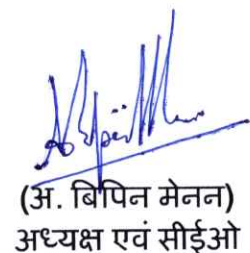 (अ. बिपिन मेनन)
अध्यक्ष एवं सीईओ